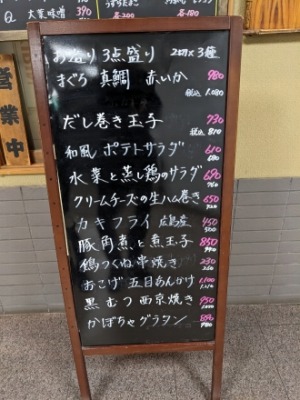 大葉味噌 390
営業中
お造り 3点盛り 2切×3種
まぐろ 真鯛 赤いか 980
税込 1,080
だし巻き玉子 730
税込 810
和風 ポテトサラダ 610
680
水菜と蒸し鶏のサラダ 690
760
クリームチーズの生ハム巻き 650
720
カキフライ 広島産 450
500
豚角煮と煮玉子 850
940
鶏つくね串焼き 230
260
おこげ 五目あんかけ 1,100
黒むつ 西京焼き 950
かぼちゃグラタン